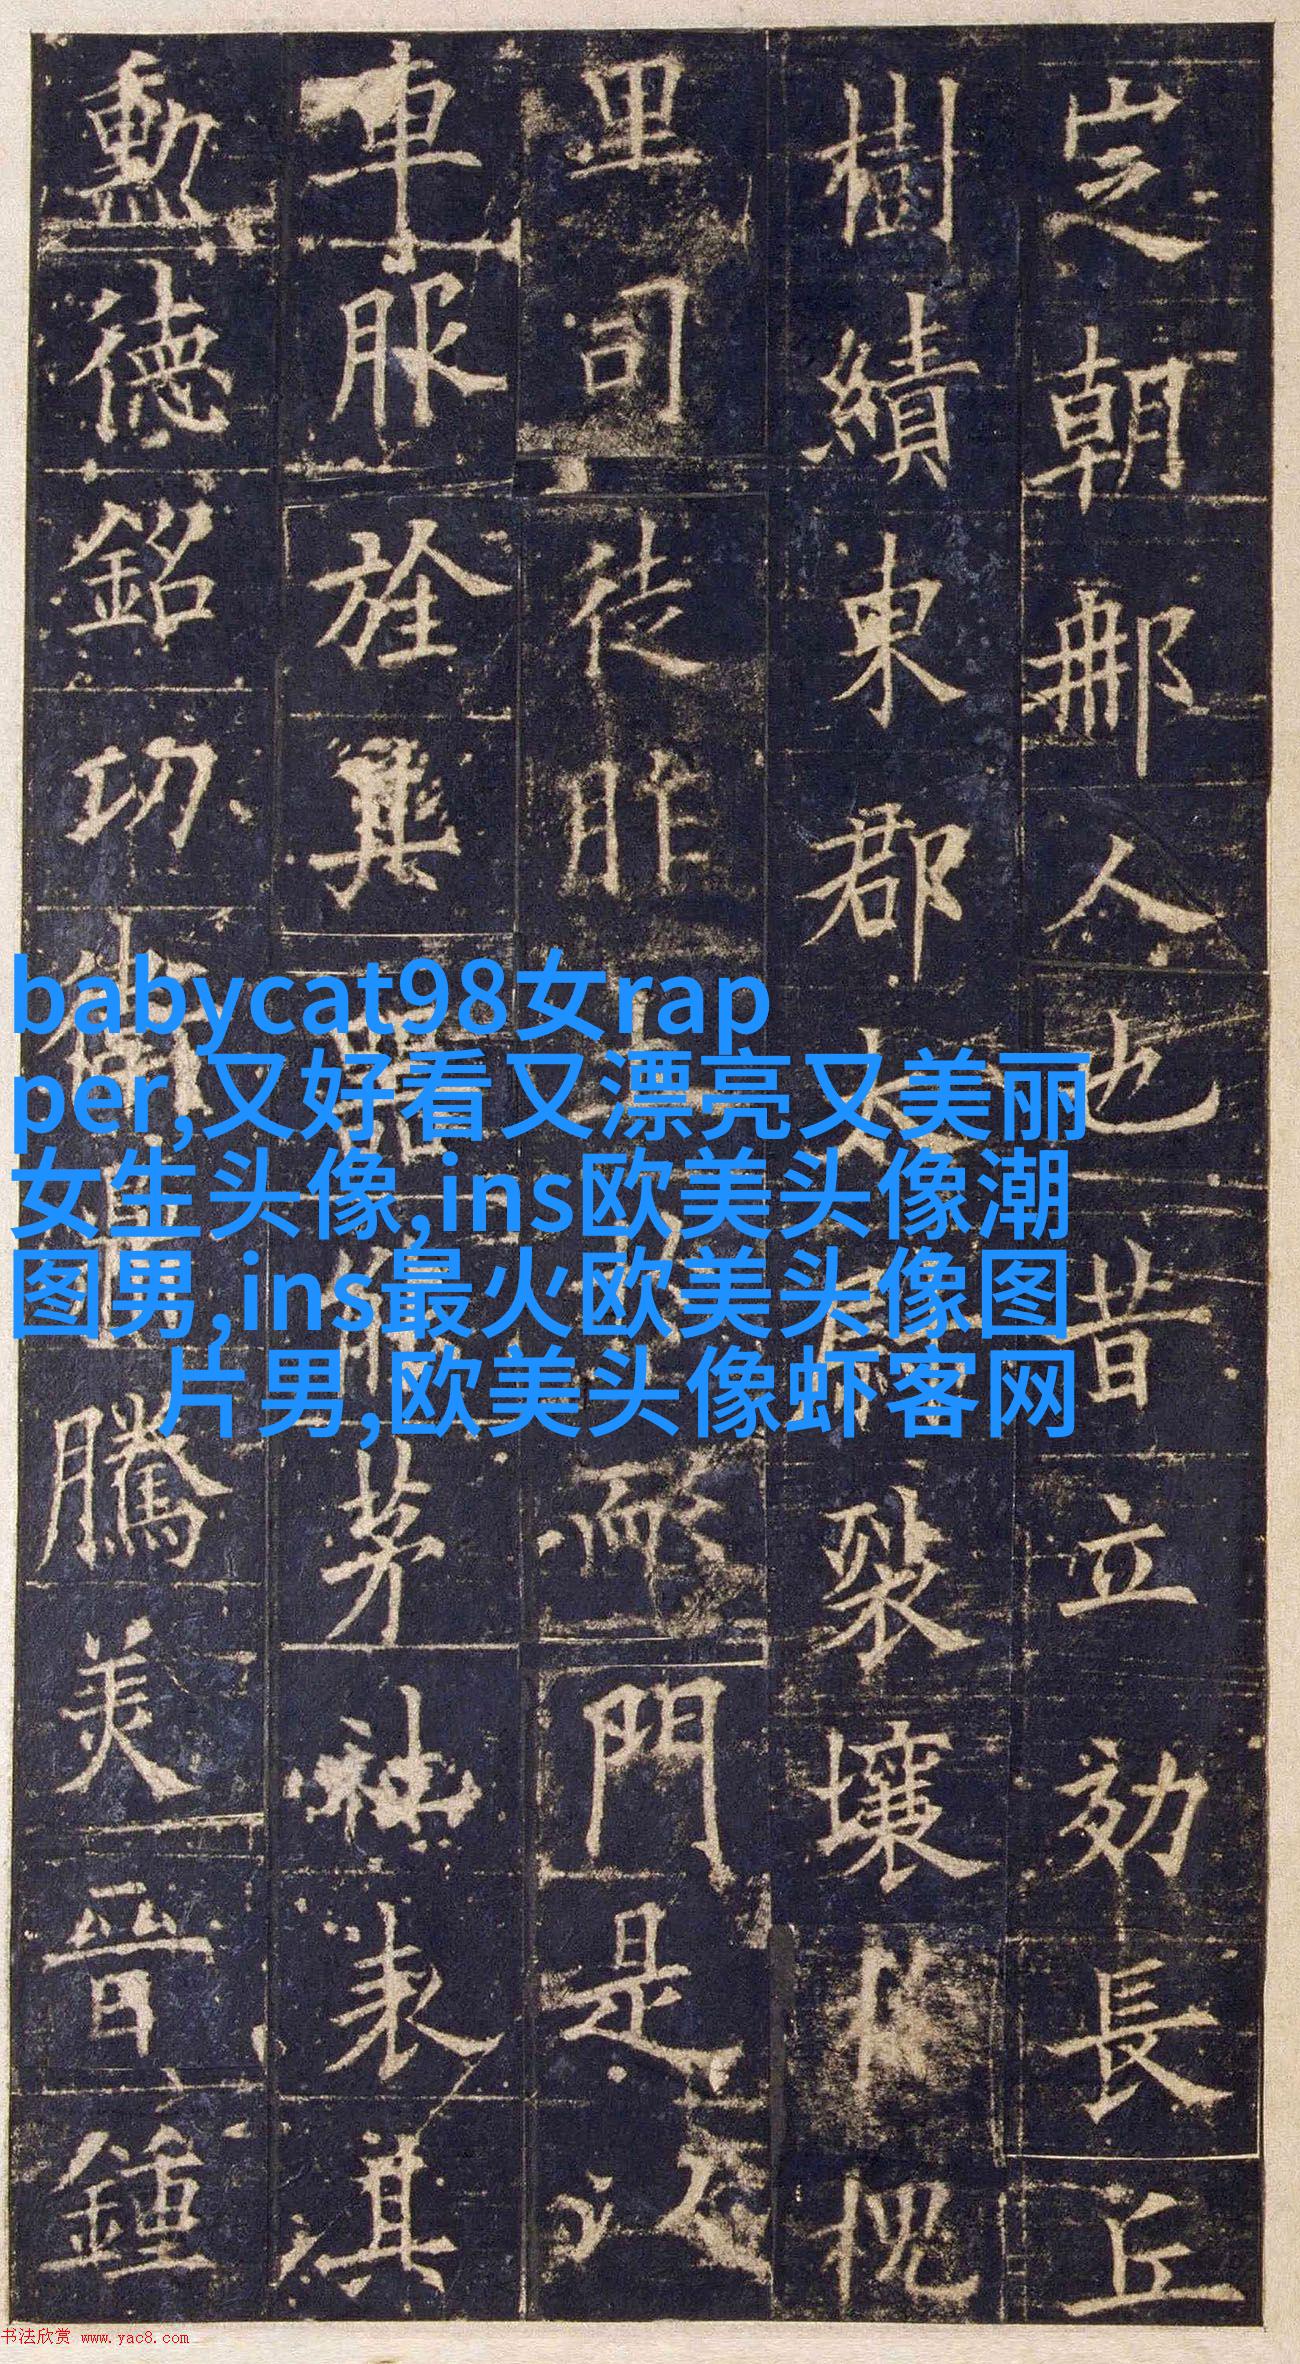 定朝那人也昔立効長丘
樹績東郡太尉裂壤於槐
里司徒胙土於耏門是以
車服旌其器能茅社表其
勳德銘功衛鼎騰美晉鍾
babycat98女rap
per,又好看又漂亮又美丽
女生头像,ins欧美头像潮
图男,ins最火欧美头像图
片男,欧美头像虾客网
书法欣赏 www.yac8.com